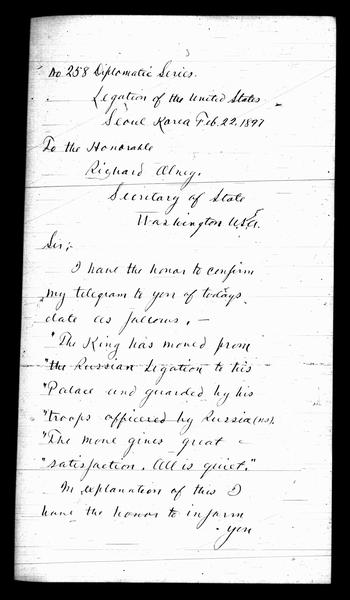 3
No. 258 Diplomatic Series.
Legation of the United States
Seoul Korea Feb. 22. 1897
To the Honorable
Richard Olney.
Secretary of State
Washington U.S.A.
Sir:
I have the honor to confirm
my telegram to you of todays
date as follows, —
"The King has moved from
"the Russian Legation to his
"Palace and guarded by his
"troops officered by Russia(ns).
"The move gives great
"satisfaction. All is quiet."
In explanation of this I
have the honor to inform
you